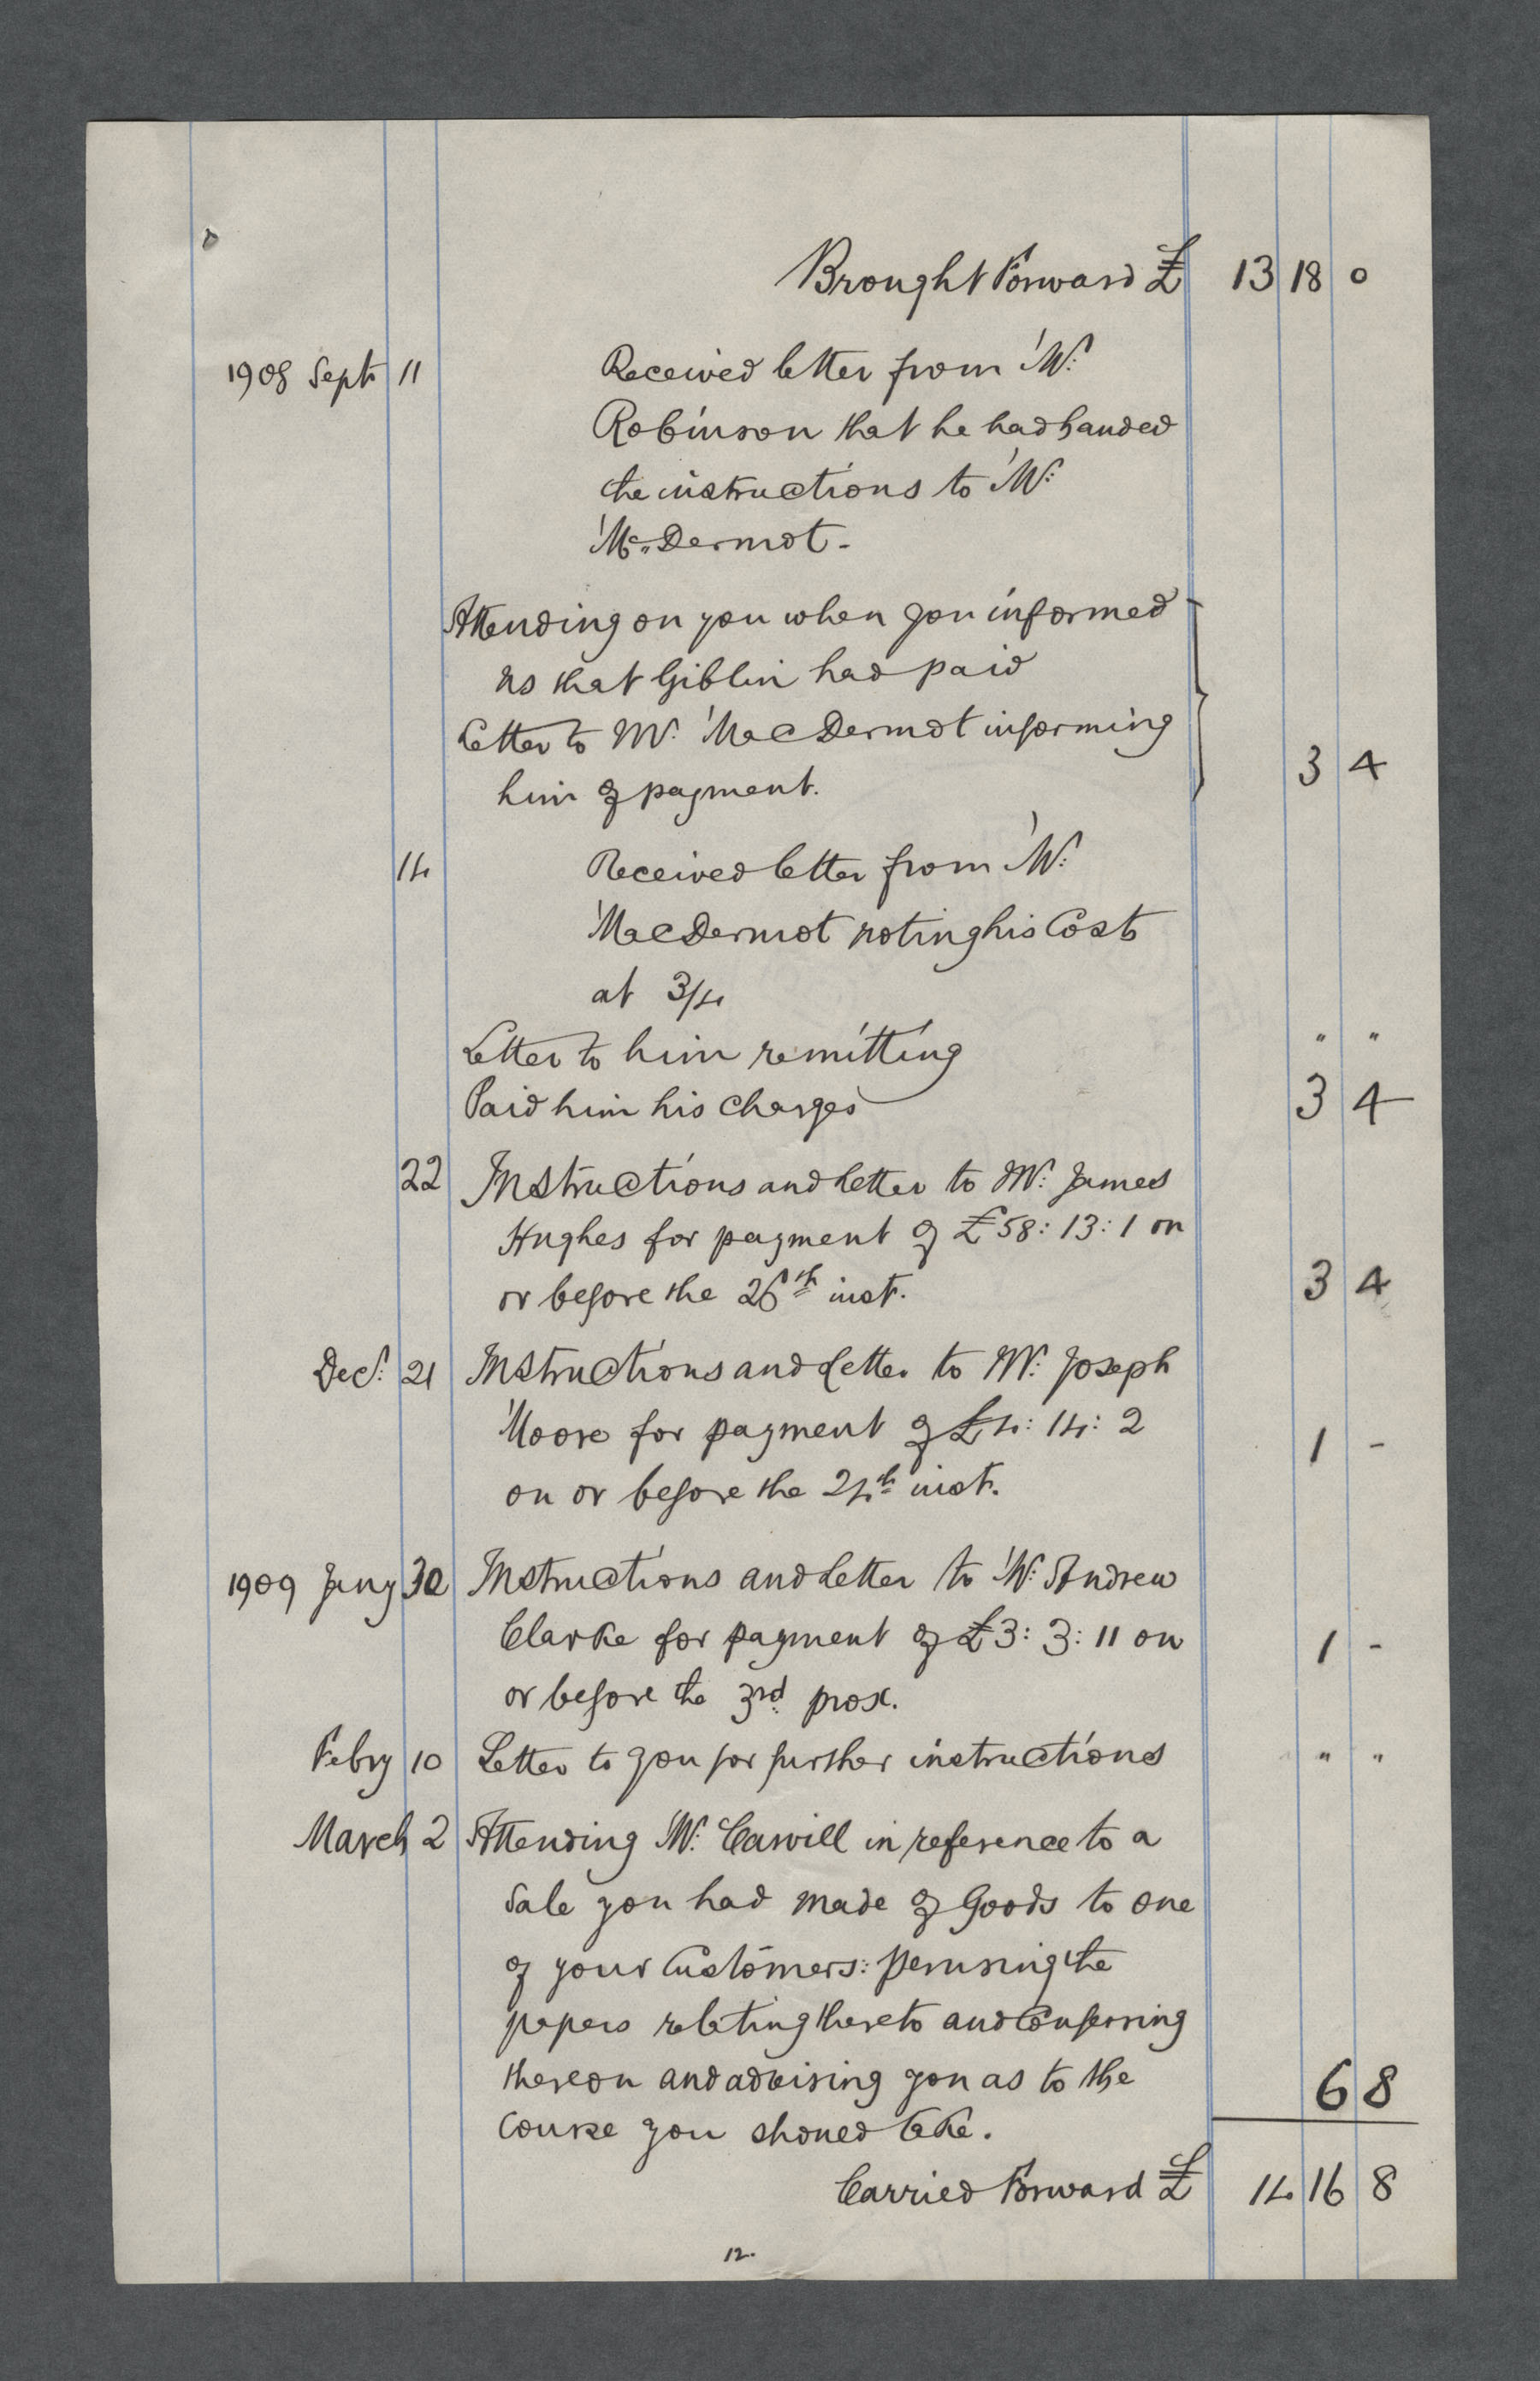 Brought Forward £ 13 18 0
1908 Sept 11 Received letter from Mr.
Robinson that he had handed
the instructions to Mr.
McDermot.
Attending on you when you informed
us that Giblin had paid
Letter to Mr. MacDermot informing
him of payment. 3 4
14 Received letter from Mr.
MacDermot noting his Costs
at 3/4
Letter to him remitting " "
Paid him his charges 3 4
22 Instructions and letter to Mr. James
Hughes for payment of £58:13:1 on
or before the 26th inst. 3 4
Decr. 21 Instructions and Letter to Mr. Joseph
Moore for payment of £4:14:2 1 -
on or before the 24th inst.
1909 Jany 30 Instructions and Letter to Mr. Andrew
Clarke for payment of £3:3:11 on 1 -
or before the 3rd prox.
Febry 10 Letter to you for further instructions " "
March 2 Attending Mr. Carvill in reference to a
Sale you had made of Goods to one
of your Customers: perusing the
papers relating thereto and Conferring
thereon and advising you as to the 6 8
Course you should take.
Carried Forward £ 14 16 8
12.